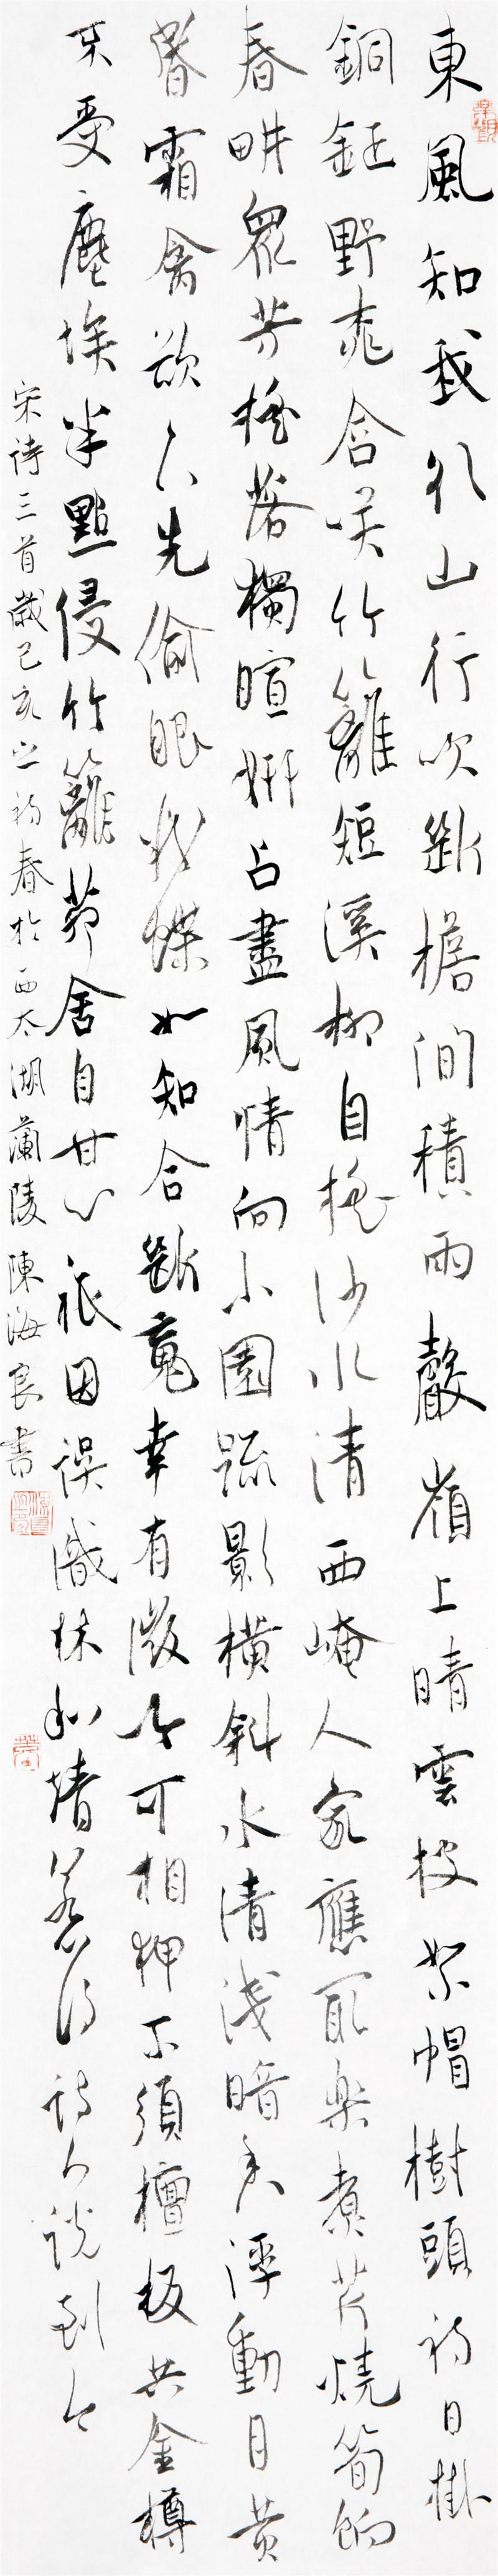 東風知我欲山行吹斷檐間積雨聲嶺上晴雲披絮帽樹頭初日掛
銅鉦野桃含笑竹籬短溪柳自搖沙水清西崦人家應最樂煮芹燒筍餉
春畊衆芳搖落獨暄妍占盡風情向小園疏影橫斜水清淺暗香浮動月黄
昏霜禽欲下先偷眼粉蝶如知合斷魂幸有微吟可相狎不須檀板共金樽
不受塵埃半點侵竹籬茆舍自甘心祇因誤識林和靖惹得詩人說到今
宋诗三首歲己亥之初春於西太湖蘭陵陳海良書